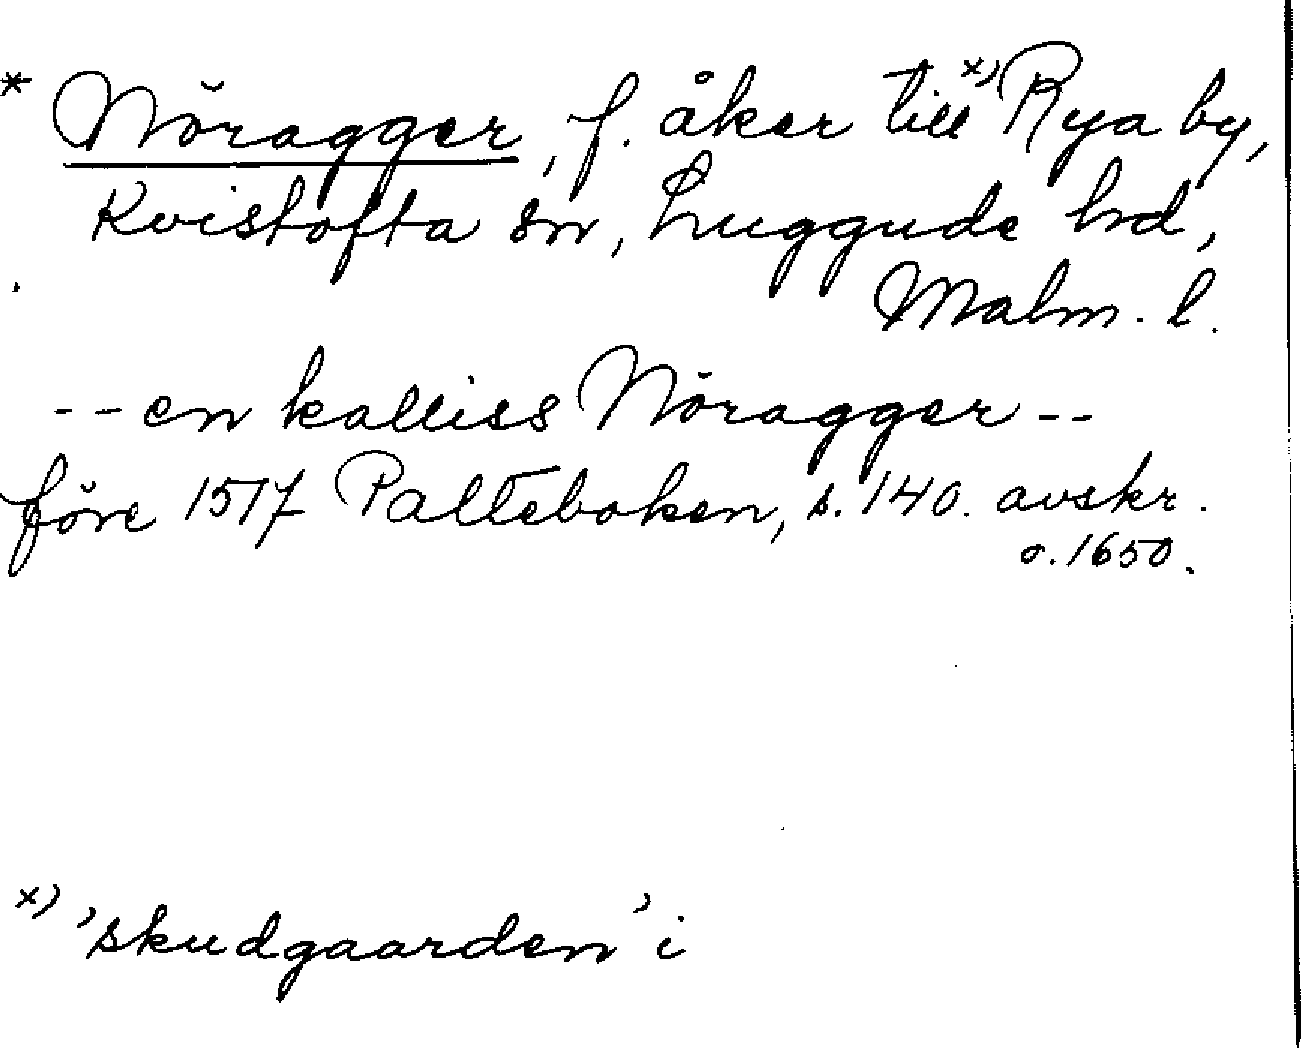 * Nöragger, f. åker till x) Rya by,
Kvistofta sn, Luggude hd,
Malm. l.
-- en kalliss Nöragger --
före 1517 Palteboken, s. 140. avskr.
o. 1650.
x) 'skudgaarden' i